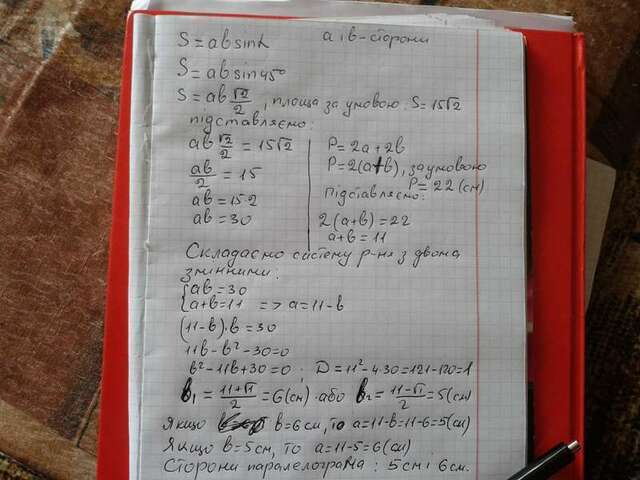 S = ab sin α a i b - сторони
S = ab sin 45°
S = ab √2/2, площа за умовою: S = 15√2
підставляємо:
ab √2/2 = 15√2
ab/2 = 15
ab = 15·2
ab = 30
P = 2a + 2b
P = 2(a+b), за умовою
P = 22 (см)
підставляємо:
2(a+b) = 22
a+b = 11
Складаємо систему р-ня з двома
змінними:
{ab = 30
{a+b = 11 => a = 11-b
(11-b)·b = 30
11b - b² - 30 = 0
b² - 11b + 30 = 0; D = 11² - 4·30 = 121 - 120 = 1
b₁ = (11+√1)/2 = 6 (см) або b₂ = (11-√1)/2 = 5 (см)
Якщо b = 6 см, то a = 11-b = 11-6 = 5 (см)
Якщо b = 5 см, то a = 11-5 = 6 (см)
Сторони паралелограма: 5 см і 6 см.